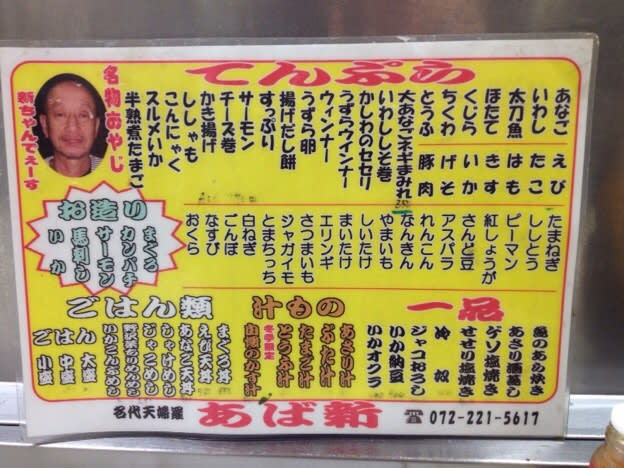 てんぷら
あなご
いわし
太刀魚
ほたて
くじら
ちくわ
とうふ
えび
たこ
はも
きす
いか
げそ
豚肉
大あなごネギまみれ
いわしそ巻
かしわのセセリ
うずらウインナー
ウィンナー
うずら卵
揚げだし餅
すっぷり
サーモン
チーズ巻
かき揚げ
ししゃも
こんにゃく
スルメいか
半熟煮たまご
名物おやじ
新ちゃんでぇーす
たまねぎ
ししとう
ピーマン
紅しょうが
さんど豆
アスパラ
れんこん
なんきん
やまいも
しいたけ
まいたけ
エリンギ
さつまいも
ジャガイモ
とまちっち
白ねぎ
ごんぼ
なすび
おくら
お造り
まぐろ
カンパチ
サーモン
馬刺し
いか
一品
魚のあら炊き
あさり酒蒸し
ゲソ塩焼き
せせり塩焼き
冷奴
ジャコおろし
いか納豆
いかオクラ
汁もの
あさり汁
ぶた汁
たまご汁
とうふ汁
冬季限定
白みそのかす汁
ごはん類
まぐろ丼
えび天丼
あなご天丼
しゃけめし
じゃこめし
野沢菜ちりめんめし
いかこんぶめし
ごはん
大盛
中盛
小盛
名代天婦羅
あば新
☎072-221-5617